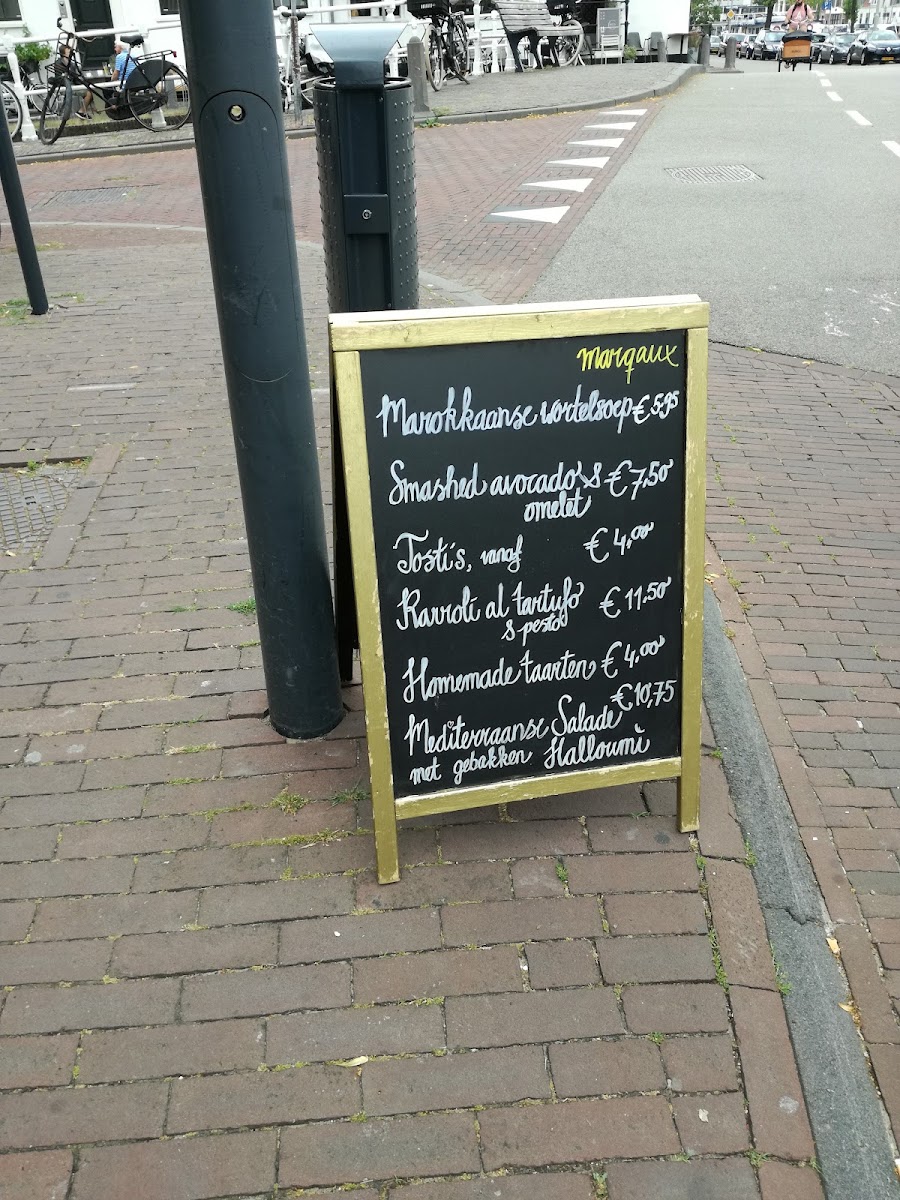 margaux
Marokkaanse wortelsoep € 5,95
Smashed avocado & € 7,50
omelet
Tosti's, vanaf € 4,00
Ravioli al tartufo € 11.50
& pesto
Homemade taarten € 4,00
Mediterraanse Salade € 10,75
met gebakken Halloumi